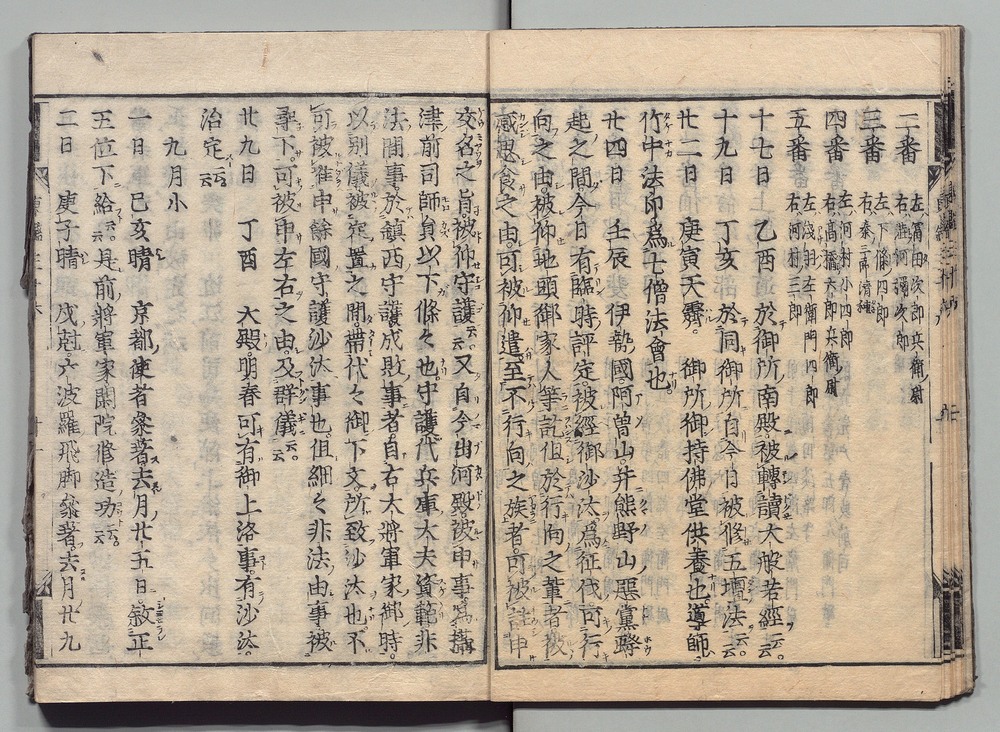 二番 左 富田次郎兵衛尉
右 熊河彌次郎
三番 左 下條四郎
右 秦三郎
四番 左 河村小四郎
右 高橋六郎兵衛尉
五番 左 淺羽左衛門四郎
右 河村三郎
十七日 乙酉 於御所南殿被轉讀大般若經云云
十九日 丁亥 於同御所自今日被修五壇法云云
廿二日 庚寅天霽 御所御持佛堂供養也導師
竹中法印爲七僧法會也
廿四日 壬辰 伊勢國阿曾山并熊野山惡黨蜂
起之間今日有臨時評定被經御沙汰爲征伐可行
向之由被仰地頭御家人等訖但於行向之輩者被
感思食之由可被仰遣至不行向之族者可被註申
交名之旨被仰守護云云又自今出河殿被申事爲攝
津前司師員以下條々也守護代兵庫大夫資範非
法間事於鎮西守護成敗事者自右大將軍家御時
以別儀被定置之間帶代々御下文所致沙汰也不
可被准申餘國守護沙汰事也但細々非法由事被
尋下可被申左右之由及群儀云云
廿九日 丁酉 大殿明春可有御上洛事有沙汰
治定云云
九月小
一日 己亥晴 京都使者參著去月廿五日敘正
五位下給云云是前將軍家閑院修造功云云
二日 庚子晴 戌尅六波羅飛脚參著去月廿九